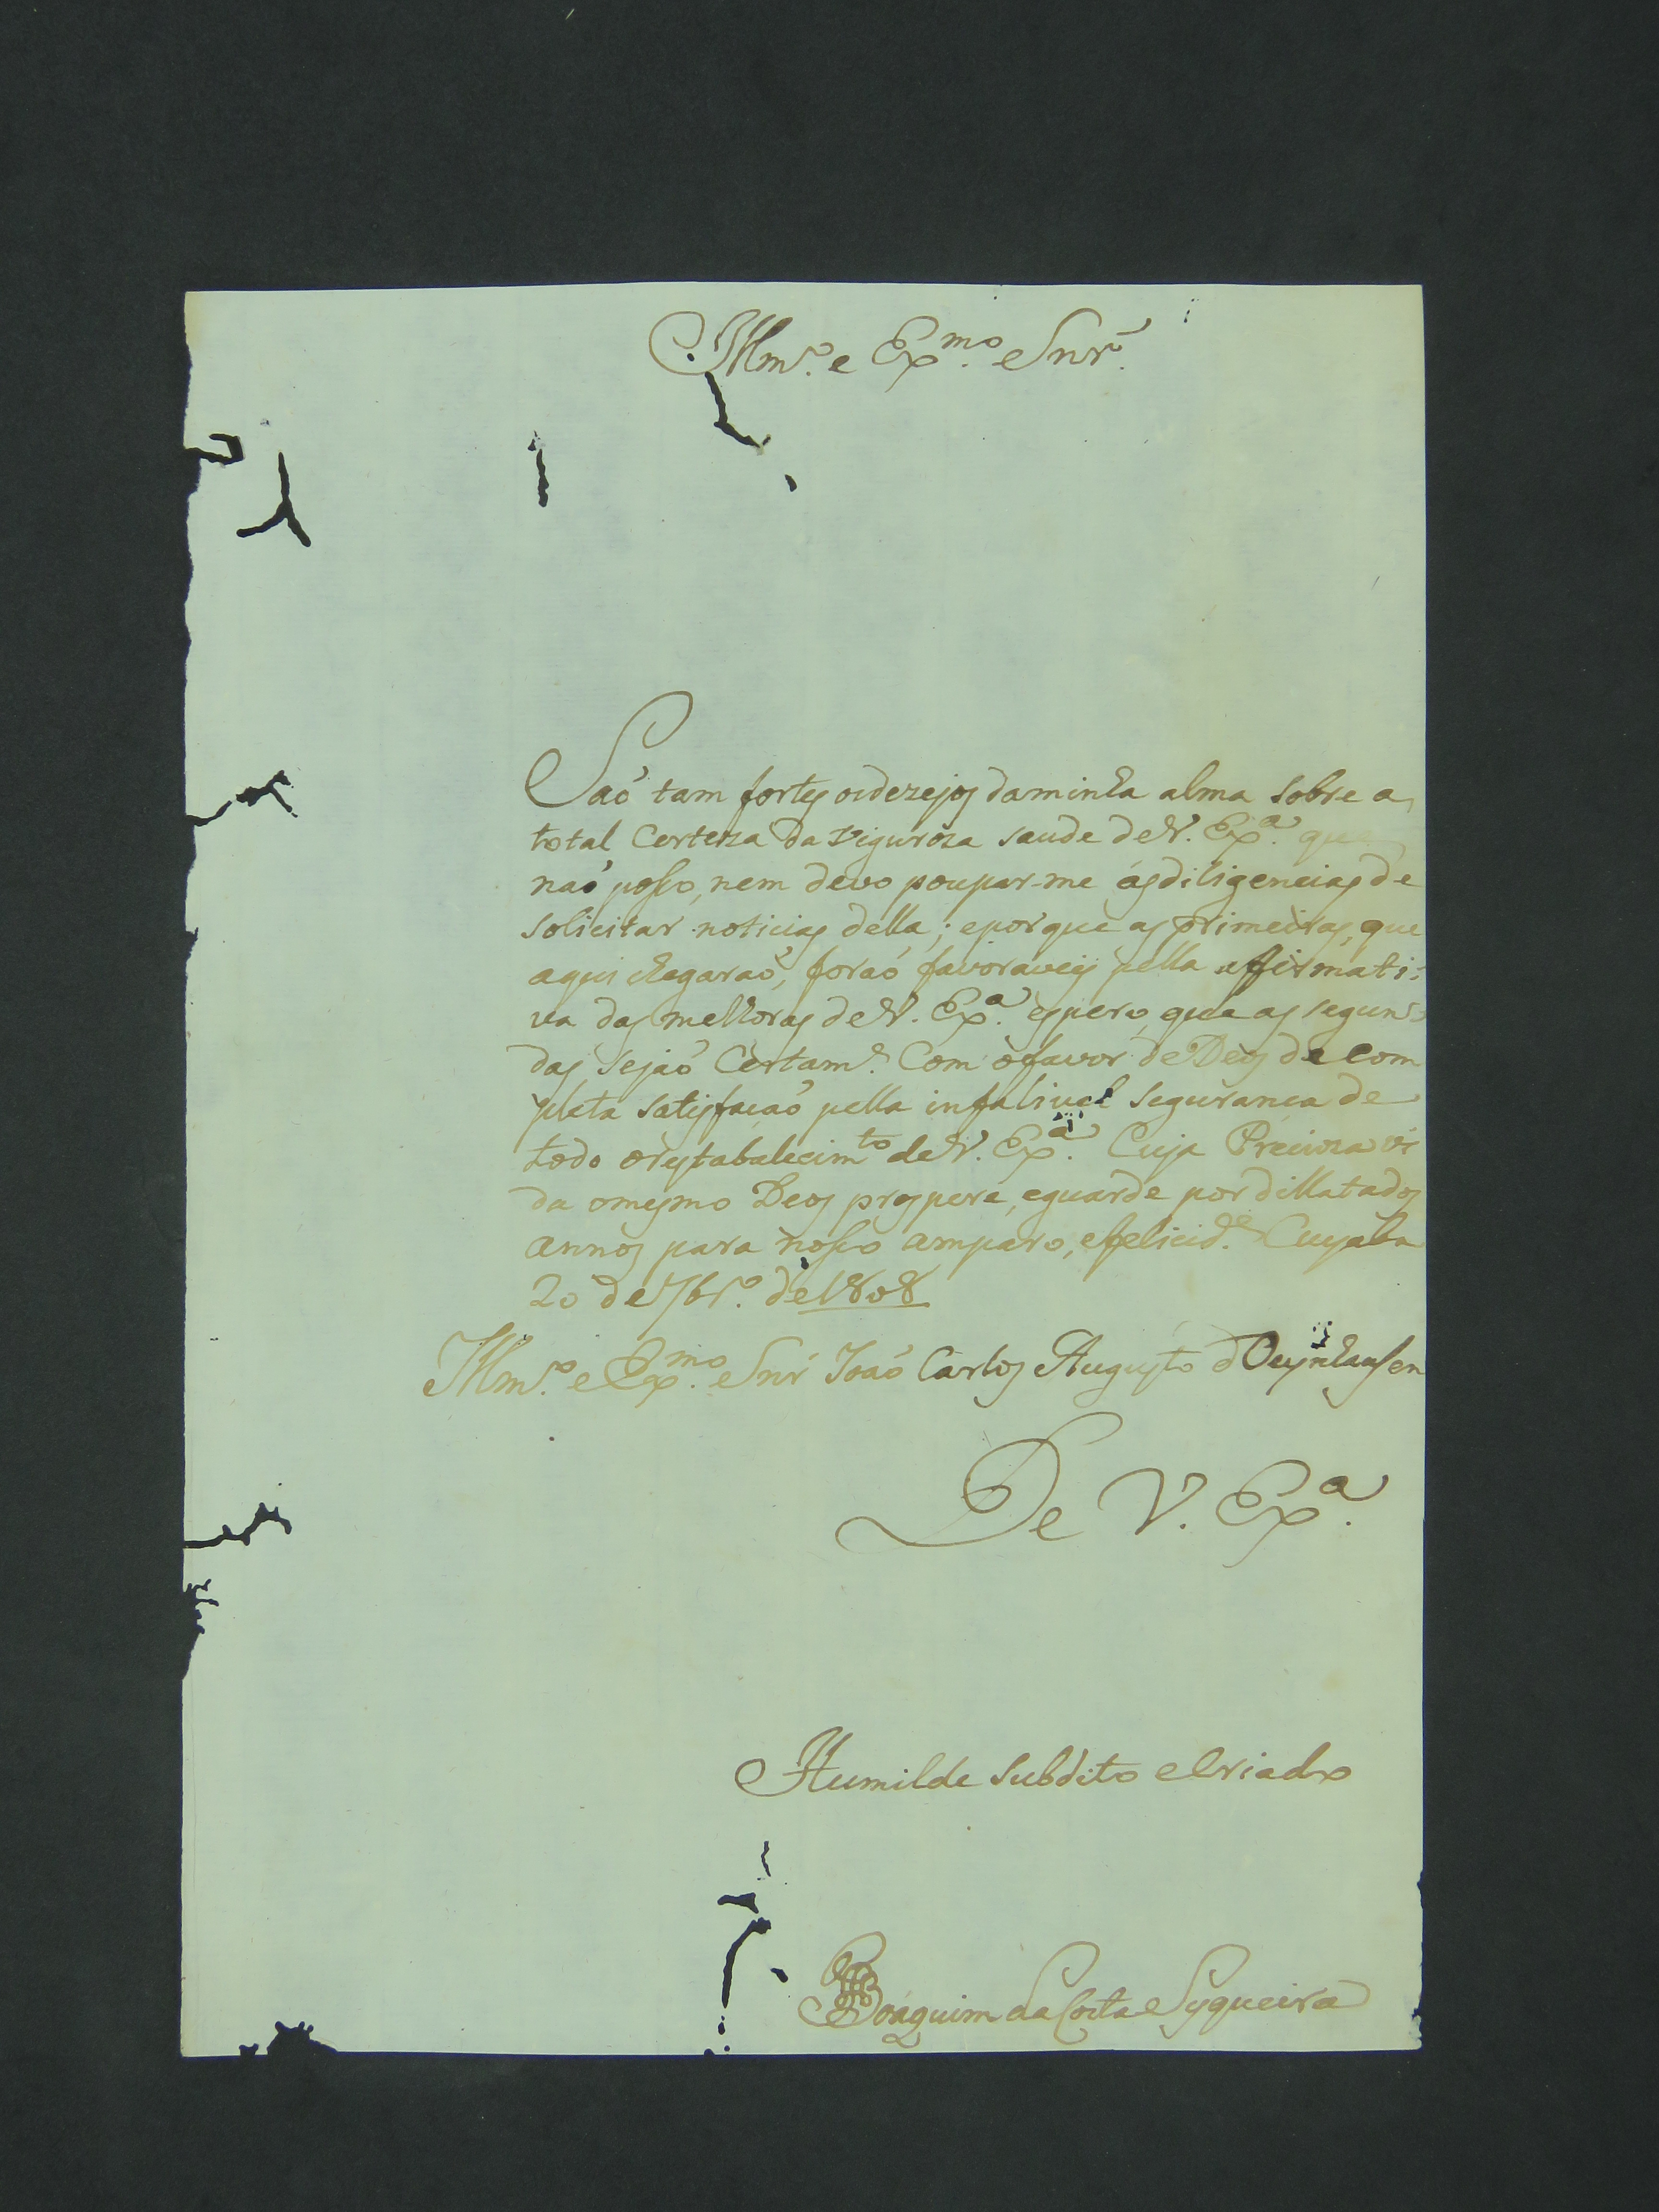 Illm.º e Ex.mo Snr.
Saó tam fortes os dezejos da minha alma sobre a
total Certeza da vigurósa saude de V. Ex.a que
naó posso, nem devo poupar-me ás diligencias de
solicitar noticias della; e porque as primeiras, que
aqui chegaraó, foraó favoraveis pella affirmati-
va das melhoras de V. Ex.a espero, que as segun-
das sejaó Certam.e Com o favor de Deos de com
pleta satisfaçaó pella infalivel segurança de
todo o restabalecim.to de V. Ex.a Cuja Precioza vi
da o mesmo Deos prospere, e guarde por dillatados
annos para nosso amparo, e felicid.e Cuyaba
20 de 7br.º de 1808
Illm.º e Ex.mo Snr Joaó Carlos Augusto d'Oeynhausen
De V. Ex.a
Humilde subdito e Criado
Joaquim da Costa Syqueira